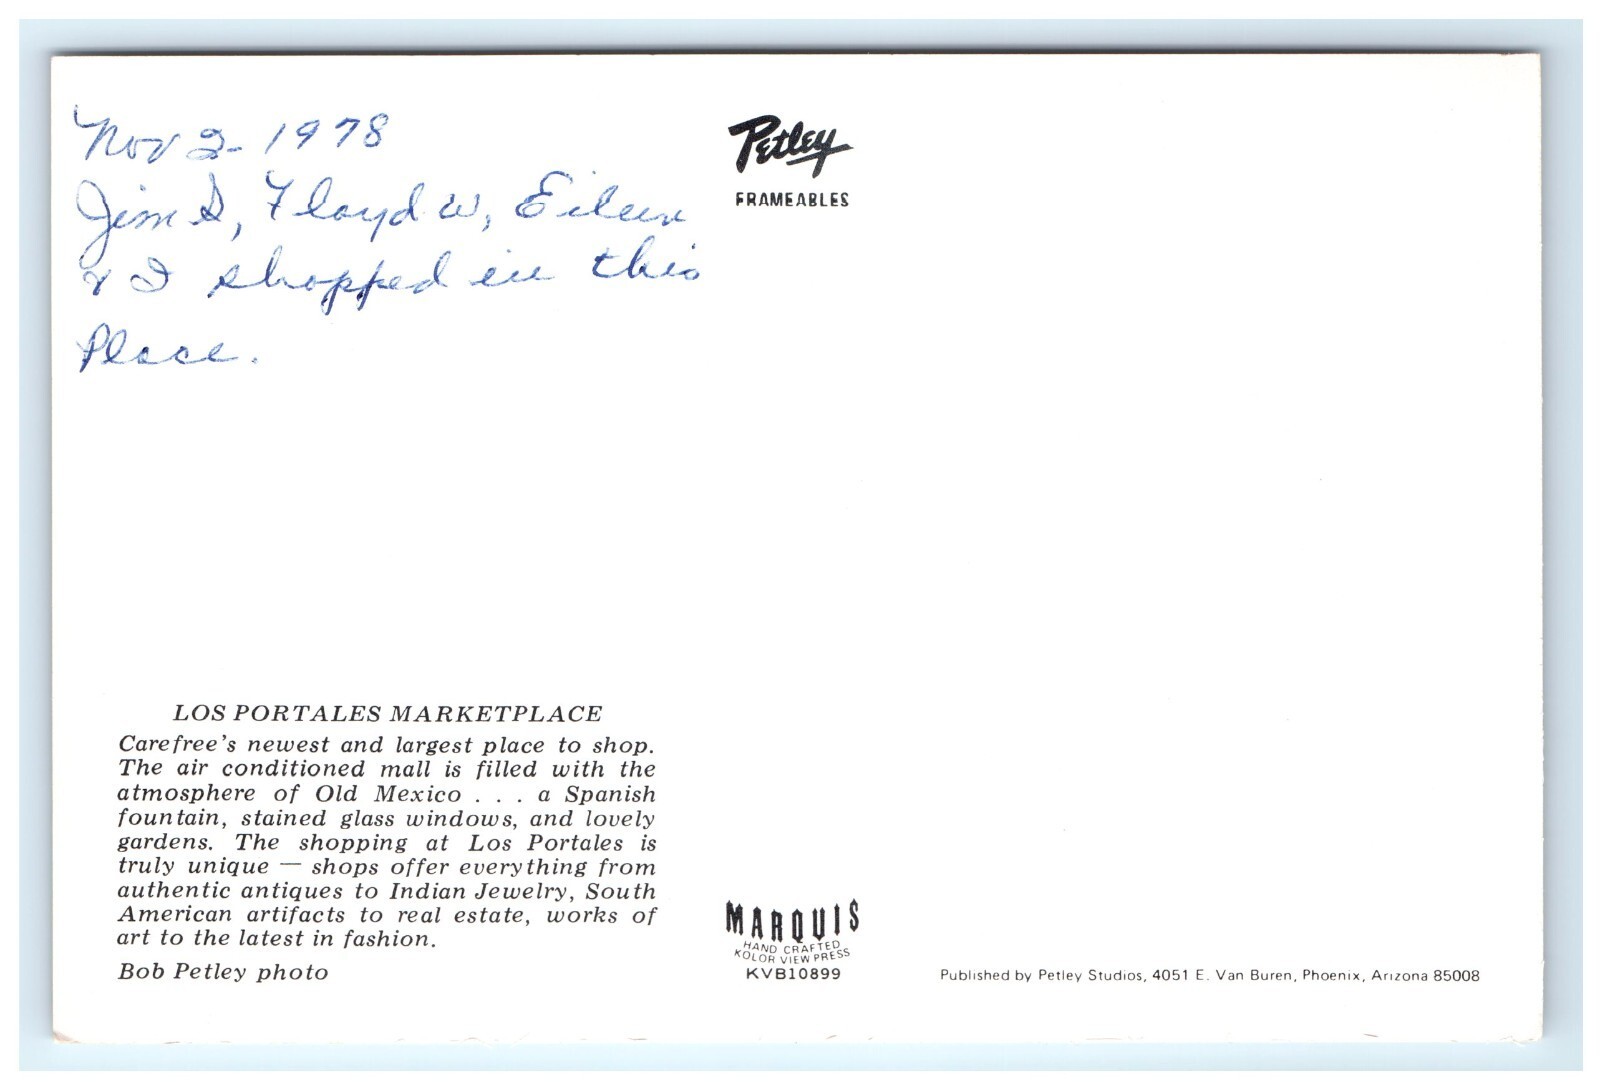 Nov 2- 1978
Jim S, Floyd W, Eileen
& I shopped in this
Place.
Petley
FRAMEABLES
LOS PORTALES MARKETPLACE
Carefree's newest and largest place to shop.
The air conditioned mall is filled with the
atmosphere of Old Mexico . . . a Spanish
fountain, stained glass windows, and lovely
gardens. The shopping at Los Portales is
truly unique — shops offer everything from
authentic antiques to Indian Jewelry, South
American artifacts to real estate, works of
art to the latest in fashion.
Bob Petley photo
MARQUIS
HAND CRAFTED
KOLOR VIEW PRESS
KVB10899
Published by Petley Studios, 4051 E. Van Buren, Phoenix, Arizona 85008